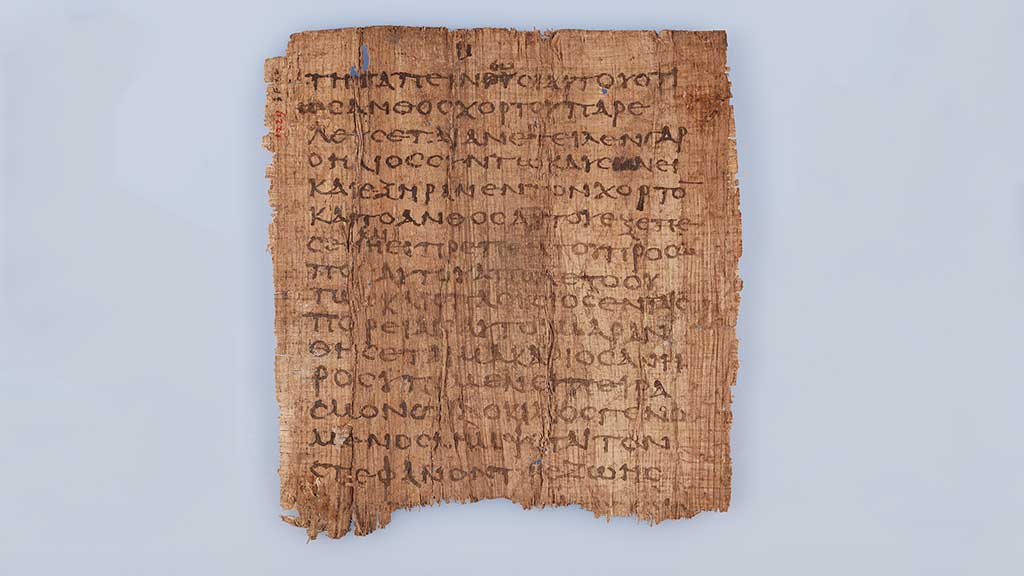 ΤΗΤΑΠΕΙΝΩCΙΑΥΤΟΥΟΤΙ
ΩCΑΝΘΟCΧΟΡΤΟΥΠΑΡΕ
ΛΕΥCΕΤΑΙΑΝΕΤΕΙΛΕΝΓΑΡ
ΟΗΛΙΟCCΥΝΤΩΚΑΥCΩΝΕΙ
ΚΑΙΕΞΗΡΑΝΕΝΤΟΝΧΟΡΤΟ̅
ΚΑΙΤΟΑΝΘΟCΑΥΤΟΥΕΞΕΠΕ
ΠΟΥΑΥΤΟΥΑΠΩΛΕΤΟΟΥ
ΤΩCΚΑΙΟΠΛΟΥCΙΟCΕΝΤΑΙC
ΠΟΡΕΙΑΙCΑΥΤΟΥΜΑΡΑΝ
ΘΗCΕΤΑΙΜΑΚΑΡΙΟCΑΝΗ
ΡΟCΥΠΟΜΕΝΕΙΠΕΙΡΑ
CΜΟΝΟΤΙΔΟΚΙΜΟCΓΕΝΟ
ΜΕΝΟCΛΗΜΨΕΤΑΙΤΟΝ
CΤΕΦΑΝΟΝΤΗCΖΩΗC